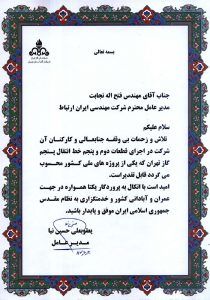 بسمه تعالی
جناب آقای مهندس فتح اله نجابت
مدیر عامل محترم شرکت مهندسی ایران ارتباط
سلام علیکم
تلاش و زحمات بی وقفه جنابعالی و کارکنان آن
شرکت در اجرای قطعات دوم و پنجم خط انتقال پنجم
گاز تهران که یکی از پروژه های ملی کشور محسوب
می گردد قابل تقدیراست.
امید است با اتکال به پروردگار یکتا همواره در جهت
عمران و آبادانی کشور و خدمتگزاری به نظام مقدس
جمهوری اسلامی ایران موفق و پایدار باشید.
یعقوبعلی حسین نیا
مدیر عامل